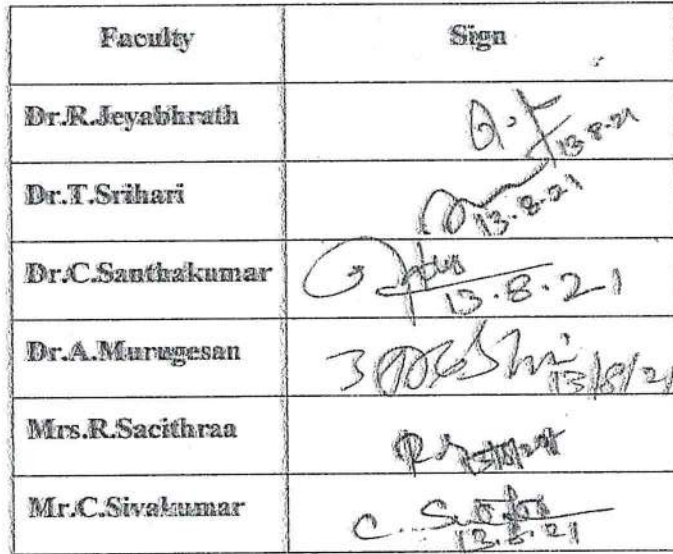 Faculty Sign
Dr.R.Jeyabhrath
13.8.21
Dr.T.Srihari
13.8.21
Dr.C.Santhakumar
13.8.21
Dr.A.Murugesan
13/8/21
Mrs.R.Sacithraa
Mr.C.Sivakumar C.
13.8.21